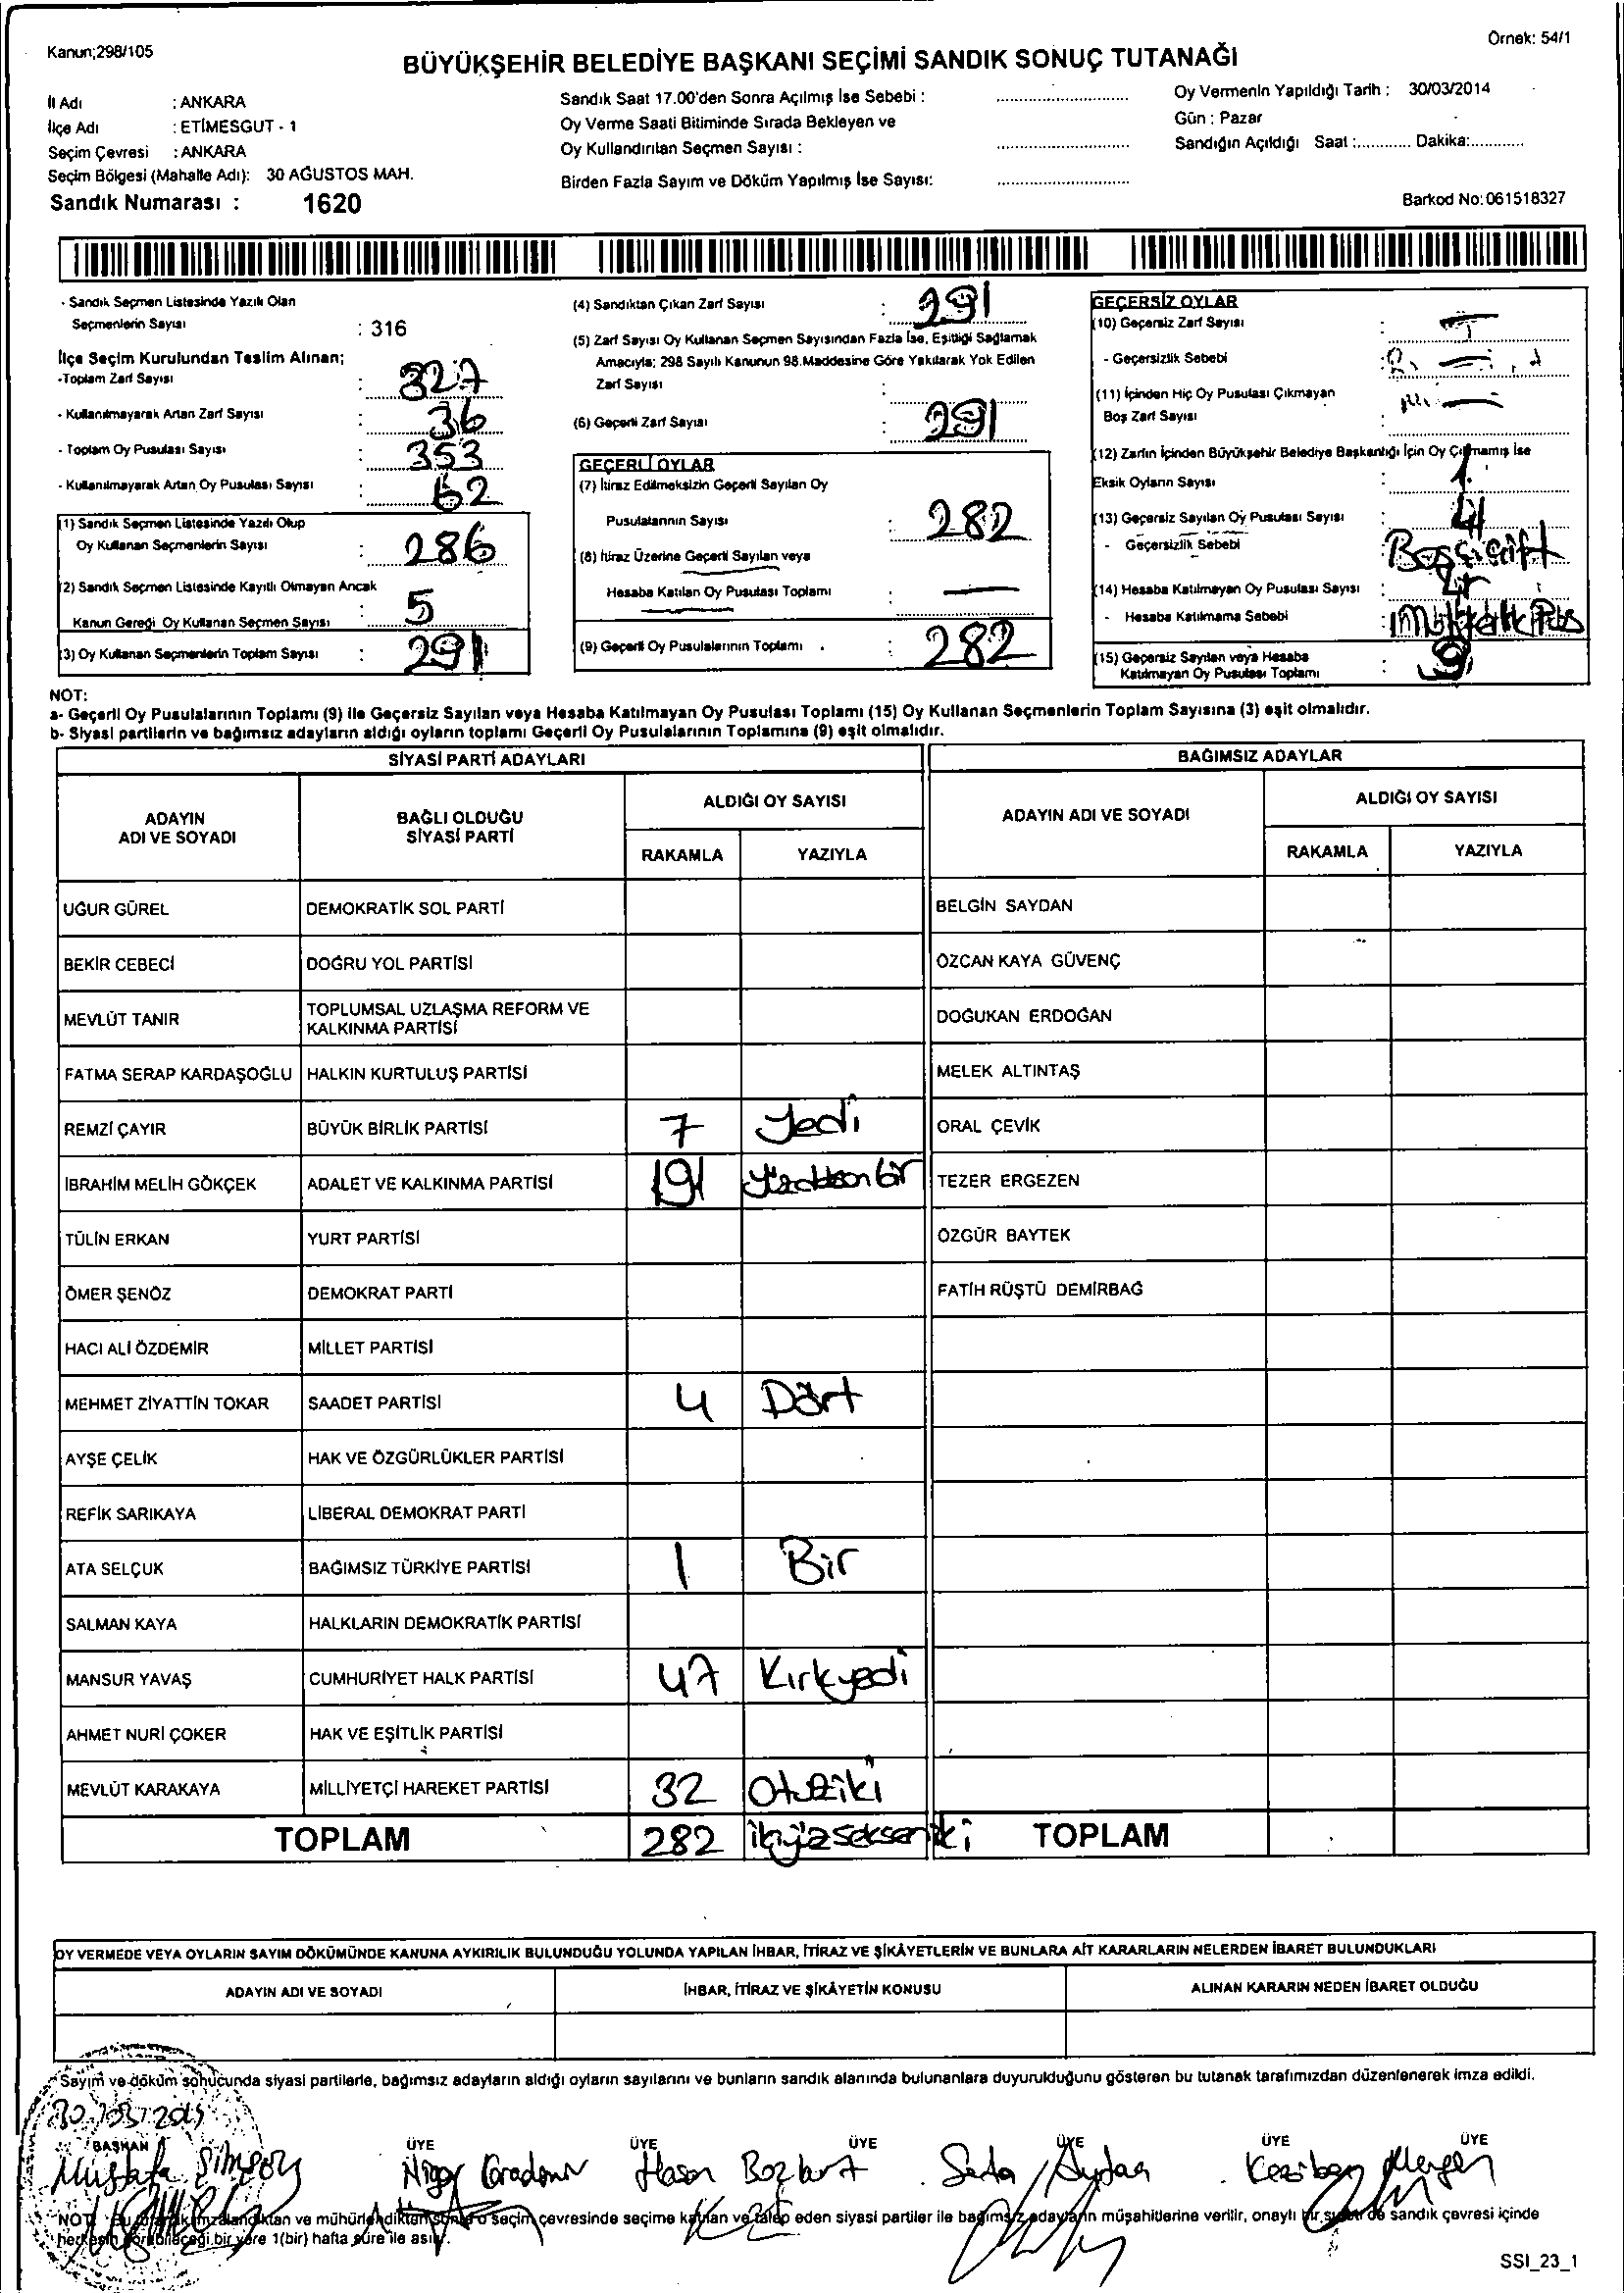 Kanun;298/105
Örnek: 54/1
BÜYÜKŞEHİR BELEDİYE BAŞKANI SEÇİMİ SANDIK SONUÇ TUTANAĞI
İl Adı : ANKARA
İlçe Adı : ETİMESGUT - 1
Seçim Çevresi : ANKARA
Seçim Bölgesi (Mahalle Adı): 30 AĞUSTOS MAH.
Sandık Numarası : 1620
Sandık Saat 17.00'den Sonra Açılmış İse Sebebi :
Oy Verme Saati Bitiminde Sırada Bekleyen ve
Oy Kullandırılan Seçmen Sayısı :
Birden Fazla Sayım ve Döküm Yapılmış İse Sayısı:
Oy Vermenin Yapıldığı Tarih : 30/03/2014
Gün : Pazar
Sandığın Açıldığı Saat :............ Dakika:............
Barkod No:061518327
- Sandık Seçmen Listesinde Yazılı Olan
Seçmenlerin Sayısı : 316
İlçe Seçim Kurulundan Teslim Alınan;
-Toplam Zarf Sayısı : 327
- Kullanılmayarak Artan Zarf Sayısı : 36
- Toplam Oy Pusulası Sayısı : 353
- Kullanılmayarak Artan Oy Pusulası Sayısı : 62
(1) Sandık Seçmen Listesinde Yazılı Olup
Oy Kullanan Seçmenlerin Sayısı : 286
(2) Sandık Seçmen Listesinde Kayıtlı Olmayan Ancak
Kanun Gereği Oy Kullanan Seçmen Sayısı : 5
(3) Oy Kullanan Seçmenlerin Toplam Sayısı : 291
(4) Sandıktan Çıkan Zarf Sayısı : 291
(5) Zarf Sayısı Oy Kullanan Seçmen Sayısından Fazla İse, Eşitliği Sağlamak
Amacıyla; 298 Sayılı Kanunun 98.Maddesine Göre Yakılarak Yok Edilen
Zarf Sayısı :
(6) Geçerli Zarf Sayısı : 291
GEÇERLİ OYLAR
(7) İtiraz Edilmeksizin Geçerli Sayılan Oy
Pusulalarının Sayısı : 282
(8) İtiraz Üzerine Geçerli Sayılan veya
Hesaba Katılan Oy Pusulası Toplamı : —
(9) Geçerli Oy Pusulalarının Toplamı : 282
GEÇERSİZ OYLAR
(10) Geçersiz Zarf Sayısı :
- Geçersizlik Sebebi :
(11) İçinden Hiç Oy Pusulası Çıkmayan
Boş Zarf Sayısı : —
(12) Zarfın İçinden Büyükşehir Belediye Başkanlığı İçin Oy Çıkmamış İse
Eksik Oyların Sayısı : 1
(13) Geçersiz Sayılan Oy Pusulası Sayısı : 4
- Geçersizlik Sebebi
(14) Hesaba Katılmayan Oy Pusulası Sayısı :
- Hesaba Katılmama Sebebi :
(15) Geçersiz Sayılan veya Hesaba
Katılmayan Oy Pusulası Toplamı : 9
NOT:
a- Geçerli Oy Pusulalarının Toplamı (9) ile Geçersiz Sayılan veya Hesaba Katılmayan Oy Pusulası Toplamı (15) Oy Kullanan Seçmenlerin Toplam Sayısına (3) eşit olmalıdır.
b- Siyasi partilerin ve bağımsız adayların aldığı oyların toplamı Geçerli Oy Pusulalarının Toplamına (9) eşit olmalıdır.
SİYASİ PARTİ ADAYLARI BAĞIMSIZ ADAYLAR
ADAYIN ADI VE SOYADI BAĞLI OLDUĞU SİYASİ PARTİ ALDIĞI OY SAYISI ADAYIN ADI VE SOYADI ALDIĞI OY SAYISI
RAKAMLA YAZIYLA RAKAMLA YAZIYLA
UĞUR GÜREL DEMOKRATİK SOL PARTİ BELGİN SAYDAN
BEKİR CEBECİ DOĞRU YOL PARTİSİ ÖZCAN KAYA GÜVENÇ
MEVLÜT TANIR TOPLUMSAL UZLAŞMA REFORM VE KALKINMA PARTİSİ DOĞUKAN ERDOĞAN
FATMA SERAP KARDAŞOĞLU HALKIN KURTULUŞ PARTİSİ MELEK ALTINTAŞ
REMZİ ÇAYIR BÜYÜK BİRLİK PARTİSİ 7 Yedi ORAL ÇEVİK
İBRAHİM MELİH GÖKÇEK ADALET VE KALKINMA PARTİSİ 191 TEZER ERGEZEN
TÜLİN ERKAN YURT PARTİSİ ÖZGÜR BAYTEK
ÖMER ŞENÖZ DEMOKRAT PARTİ FATİH RÜŞTÜ DEMİRBAĞ
HACI ALİ ÖZDEMİR MİLLET PARTİSİ
MEHMET ZİYATTİN TOKAR SAADET PARTİSİ 4 Dört
AYŞE ÇELİK HAK VE ÖZGÜRLÜKLER PARTİSİ
REFİK SARIKAYA LİBERAL DEMOKRAT PARTİ
ATA SELÇUK BAĞIMSIZ TÜRKİYE PARTİSİ 1 Bir
SALMAN KAYA HALKLARIN DEMOKRATİK PARTİSİ
MANSUR YAVAŞ CUMHURİYET HALK PARTİSİ 47 Kırkyedi
AHMET NURİ ÇOKER HAK VE EŞİTLİK PARTİSİ
MEVLÜT KARAKAYA MİLLİYETÇİ HAREKET PARTİSİ 32 Otuziki
TOPLAM 282 ikiyüzsekseniki TOPLAM
OY VERMEDE VEYA OYLARIN SAYIM DÖKÜMÜNDE KANUNA AYKIRILIK BULUNDUĞU YOLUNDA YAPILAN İHBAR, İTİRAZ VE ŞİKÂYETLERİN VE BUNLARA AİT KARARLARIN NELERDEN İBARET BULUNDUKLARI
ADAYIN ADI VE SOYADI İHBAR, İTİRAZ VE ŞİKÂYETİN KONUSU ALINAN KARARIN NEDEN İBARET OLDUĞU
Sayım ve döküm sonucunda siyasi partilerle, bağımsız adayların aldığı oyların sayılarını ve bunların sandık alanında bulunanlara duyurulduğunu gösteren bu tutanak tarafımızdan düzenlenerek imza edildi.
BAŞKAN ÜYE ÜYE ÜYE ÜYE ÜYE ÜYE
Mustafa Şimşek Hasan Bozkurt Seda Aydan Keziban
NOT: Bu tutanak imzalandıktan ve mühürlendikten sonra seçim çevresinde seçime katılan ve talep eden siyasi partiler ile bağımsız adayların müşahitlerine verilir, onaylı bir sureti de sandık çevresi içinde
herkesin görebileceği bir yere 1(bir) hafta süre ile asılır.
SSI_23_1